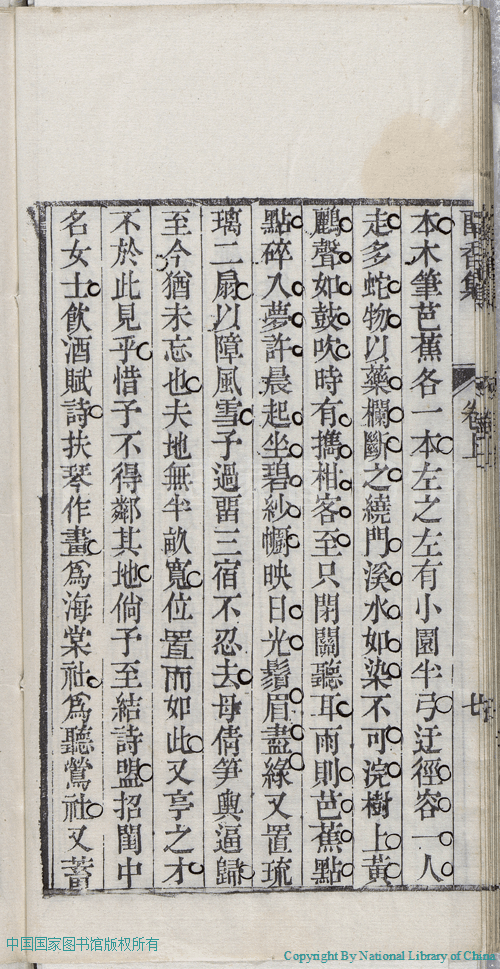 香集 卷上 七
本木筆芭蕉各一本左之左有小園半弓迂徑容一人
走多蛇物以藥欄斷之繞門溪水如染不可浣樹上黃
鸝聲如鼓吹時有擕柑客至只閉關聽耳雨則芭蕉點
點碎入夢許晨起坐碧紗幮映日光鬚眉盡綠又置琉
璃二扇以障風雪予過畱三宿不忍去母倩笋輿逼歸
至今猶未忘也夫地無半畝寬位置而如此又亭之才
不於此見乎惜予不得鄰其地倘予至結詩盟招閨中
名女士飲酒賦詩扶琴作畫為海棠社為聽鶯社又蓄
中国国家图书馆版权所有
Copyright By National Library of China